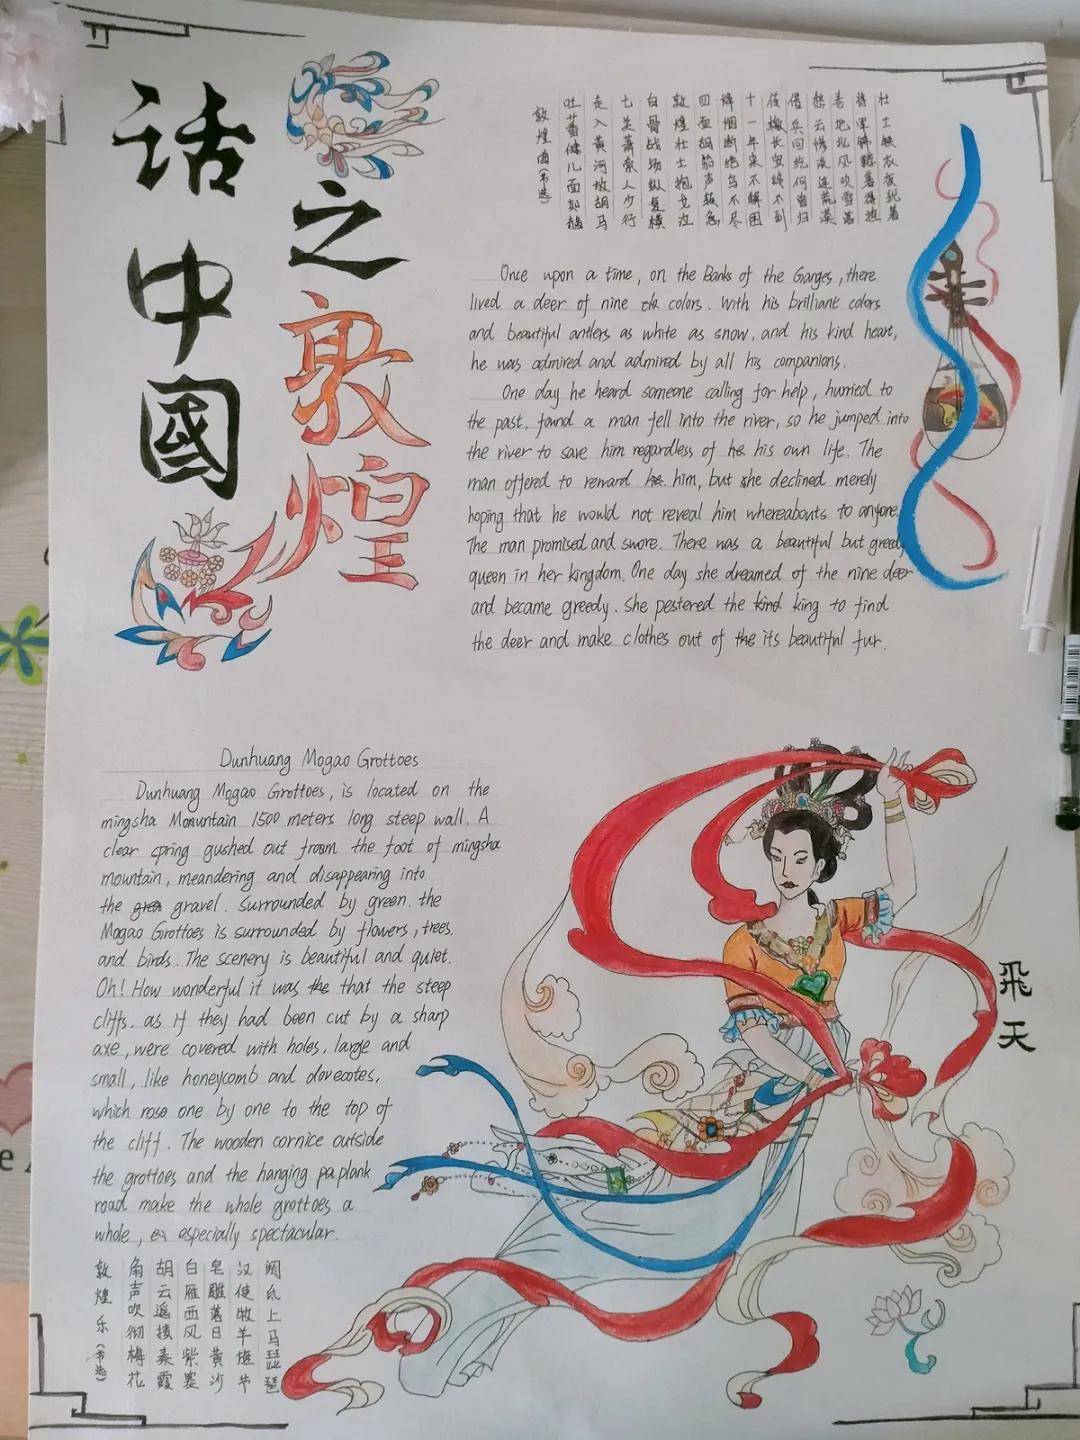 话中國
之敦煌
敦煌曲(节选)
吐蕃健儿面如赭
走入黄河放胡马
七关萧索人少行
白骨战场纵复横
敦煌壮士抱戈泣
四面胡笳声转急
烽烟断绝鸟不尽
十一年来不解围
传檄长安终不到
借兵回纥何曾归
愁云惨淡连荒漠
卷地北风吹雪落
将军锦鞯暮还
壮士铁衣夜犹著
Once upon a time, on the Banks of the Ganges, there
lived a deer of nine colors. With his brilliant colors
and beautiful antlers as white as snow, and his kind heart,
he was admired and admired by all his companions.
One day he heard someone calling for help, hurried to
the past, found a man fell into the river, so he jumped into
the river to save him regardless of his own life. The
man offered to reward him, but she declined merely
hoping that he would not reveal him whereabouts to anyone.
The man promised and swore. There was a beautiful but greedy
queen in her kingdom. One day she dreamed of the nine deer
and became greedy. She pestered the king to find
the deer and make clothes out of its beautiful fur.
Dunhuang Mogao Grottoes
Dunhuang Mogao Grottoes, is located on the
mingsha Mountain 1500 meters long steep wall. A
clear spring gushed out from the foot of mingsha
mountain, meandering and disappearing into
the gravel. Surrounded by green. the
Mogao Grottoes is surrounded by flowers, trees,
and birds. The scenery is beautiful and quiet.
Oh! How wonderful it was that the steep
cliffs. as if they had been cut by a sharp
axe, were covered with holes, large and
small, like honeycomb and dovecotes,
which rose one by one to the top of
the cliff. The wooden cornice outside
the grottoes and the hanging plank
road make the whole grottoes a
whole, especially spectacular.
飛天
敦煌乐(节选)
角声吹彻梅花
胡云遥接秦霞
白雁西风紫塞
皂雕落日黄沙
汉使牧羊旌节
阏氏上马琵琶